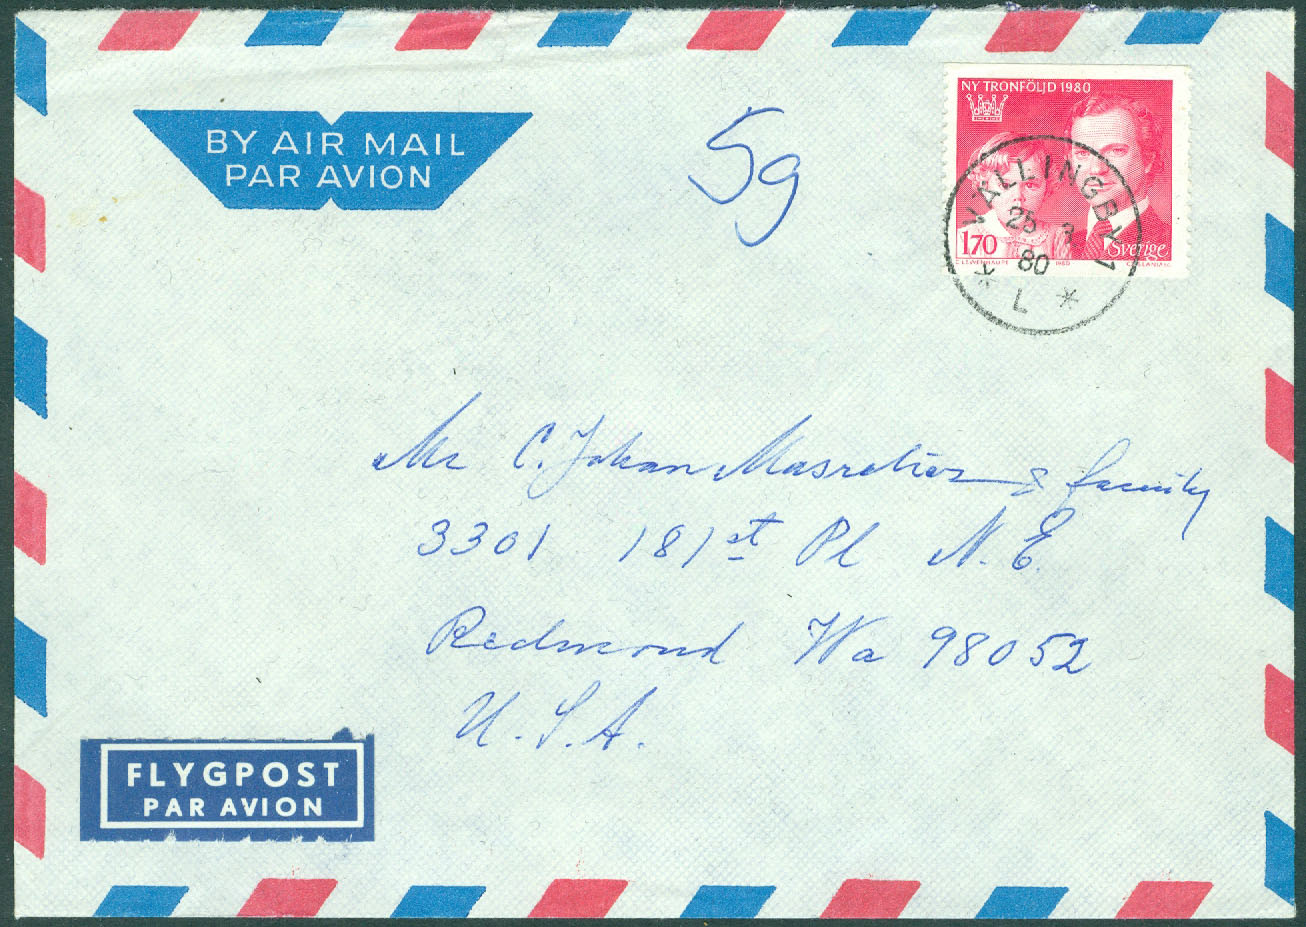 BY AIR MAIL
PAR AVION
5g
NY TRONFÖLJD 1980
170
Sverige
1980
VÄLLINGBY 1
25 3
80
* L *
Mr C. Johan & family
3301 181st Pl N.E.
Redmond Wa 98052
U.S.A.
FLYGPOST
PAR AVION